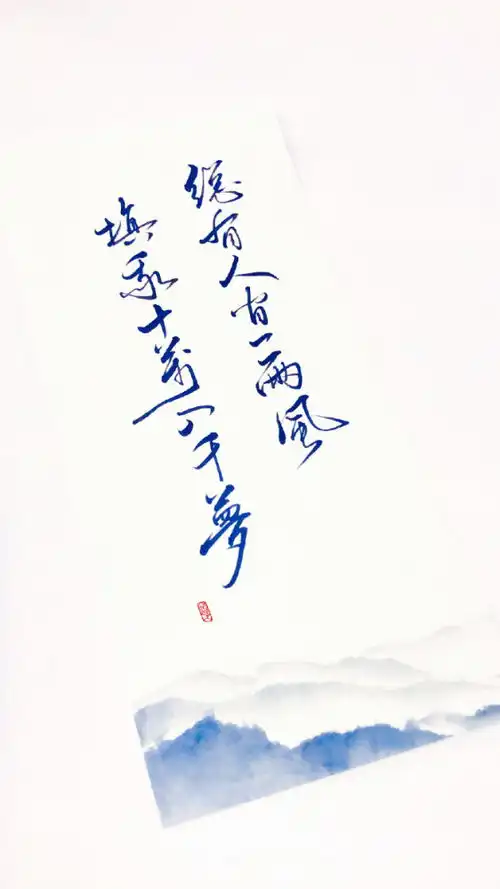 總有人间一兩風
填我十萬八千夢